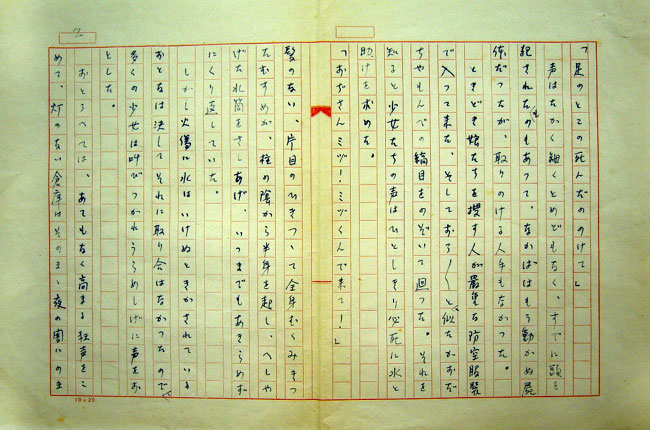 「足のとこの死んだのものけて」
声はたかく細くとめどもなく、すでに頭を
犯されたものもあって、なかばはもう動かぬ屍
体だったが、取りのける人手もなかった。
ときどき娘たちを捜す人が厳重な防空服装
で入って来た。そしておろ〱と、似たかおだ
ちやもんぺの縞目をのぞいて廻った。それを
知ると少女たちの声はひとしきり必死に水と
助けを求めた。
「おぢさんミヅ！ミヅくんで来て！」
髪のない、片目のひきつって全身むくみきっ
たむすめが、柱の陰から半身を起し、へしゃ
げた水筒をさしあげ、いつまでもあきらめず
にくり返していた。
しかし火傷に水はいけぬときかされている
おとなは決してそれに取り合はなかったので、
多くの少女は叫びつかれうらめしげに声をお
とした。
おとろへては、あてもなく高まる狂声をこ
めて、灯のない倉庫はそのまゝ夜の闇にのま
2
10×20